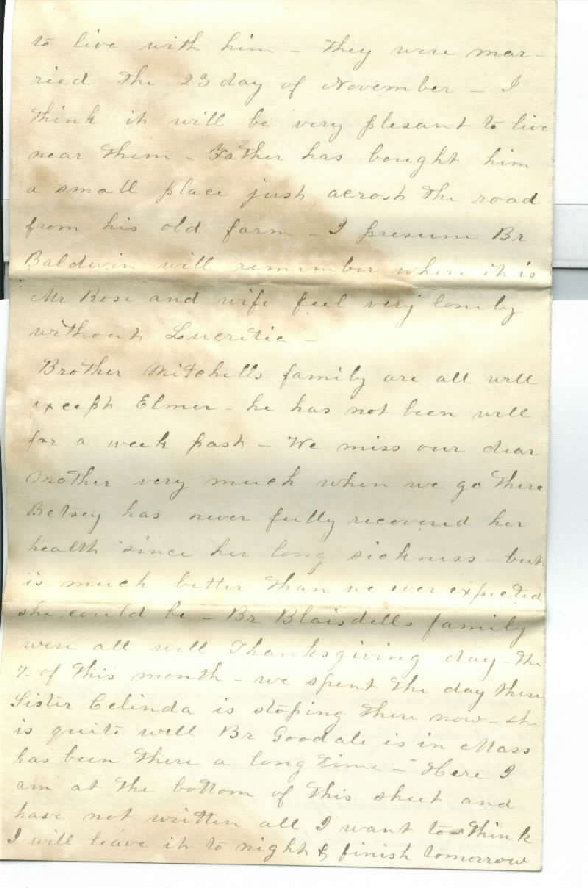 to live with him - They were mar-
ried the 23 day of November - I
think it will be very plesant to live
near them - Father has bought him
a small place just acrost the road
from his old farm - I presume Br
Baldwin will remember where it is
Mr Rose and wife feel very lonely
without Lucretie -
Brother Mitchells family are all well
except Elmer - he has not been well
for a week past - We miss our dear
Mother very much when we go there
Betsey has never fully recovered her
health since her long sickness - but
is much better than we ever expected
she could be - Br Blaisdells family
were all well Thanksgiving day the
7 of this month - we spent the day there
Sister Celinda is stoping there now - she
is quite well Br Goodale is in Mass
has been there a long time - Here I
am at the bottom of this sheet and
have not written all I want to think
I will leave it to night & finish tomorrow